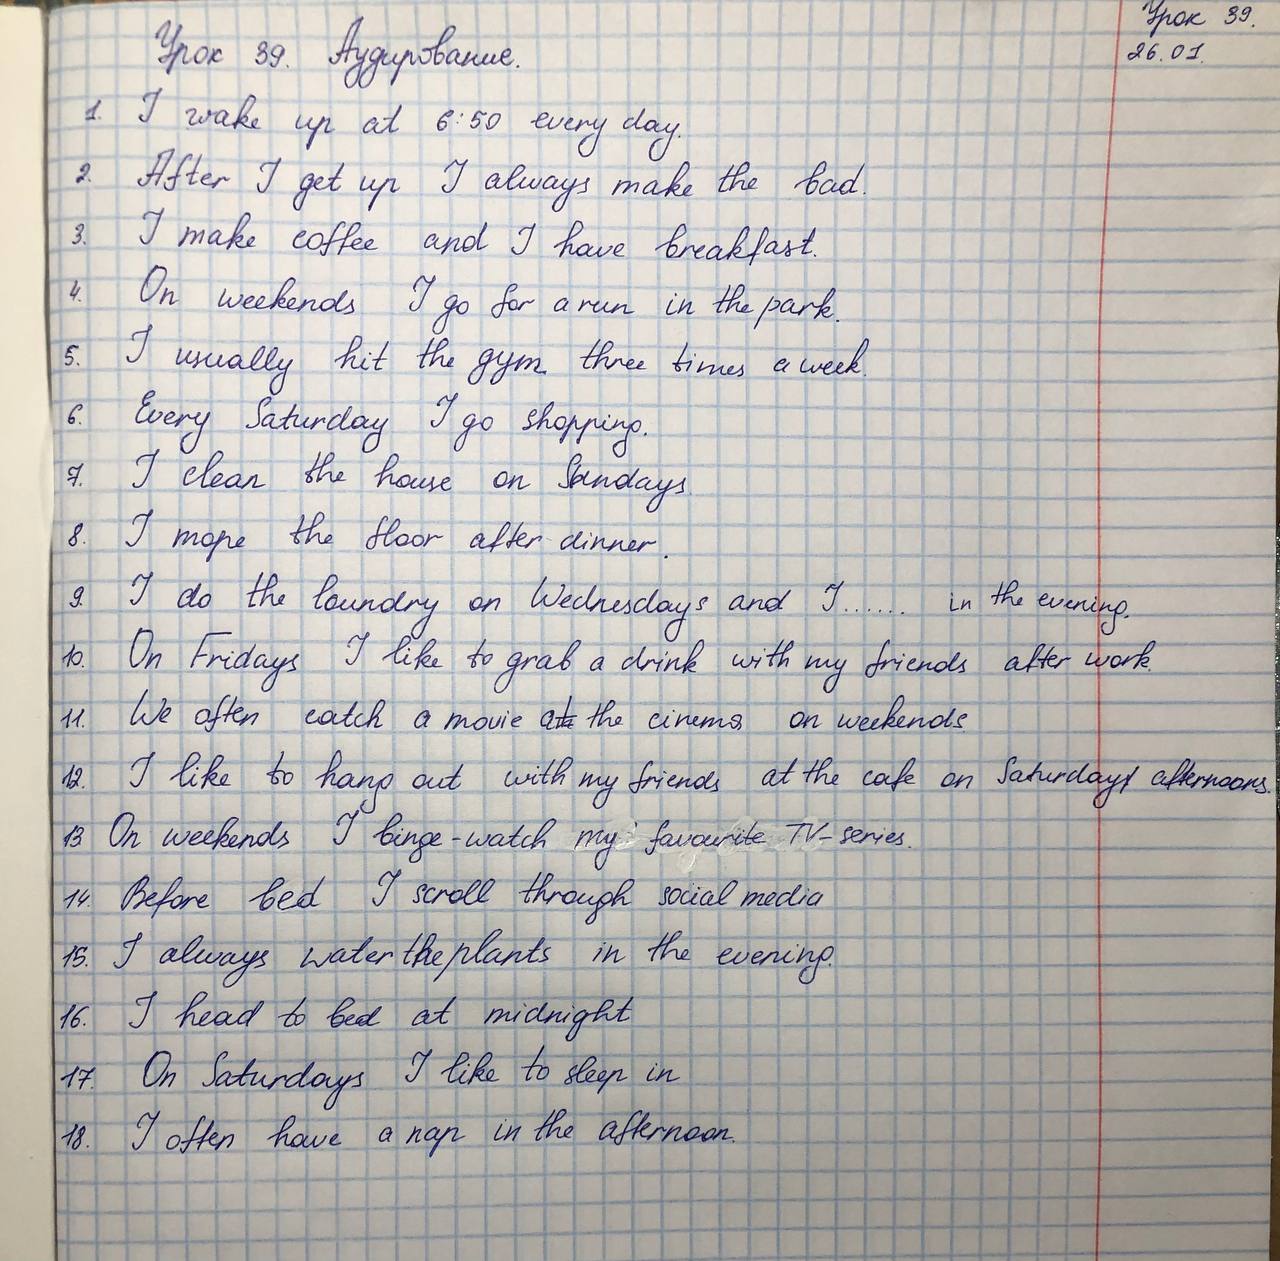 Урок 39.
26.01.
Урок 39. Аудирование.
1. I wake up at 6:50 every day.
2. After I get up I always make the bad.
3. I make coffee and I have breakfast.
4. On weekends I go for a run in the park.
5. I usually hit the gym three times a week.
6. Every Saturday I go shopping.
7. I clean the house on Sundays.
8. I mope the floor after dinner.
9. I do the laundry on Wednesdays and I...... in the evening.
10. On Fridays I like to grab a drink with my friends after work.
11. We often catch a movie at the cinema on weekends
12. I like to hang out with my friends at the cafe on Saturday afternoons.
13 On weekends I binge-watch my favourite TV-series.
14. Before bed I scroll through social media
15. I always water the plants in the evening.
16. I head to bed at midnight
17. On Saturdays I like to sleep in
18. I often have a nap in the afternoon.